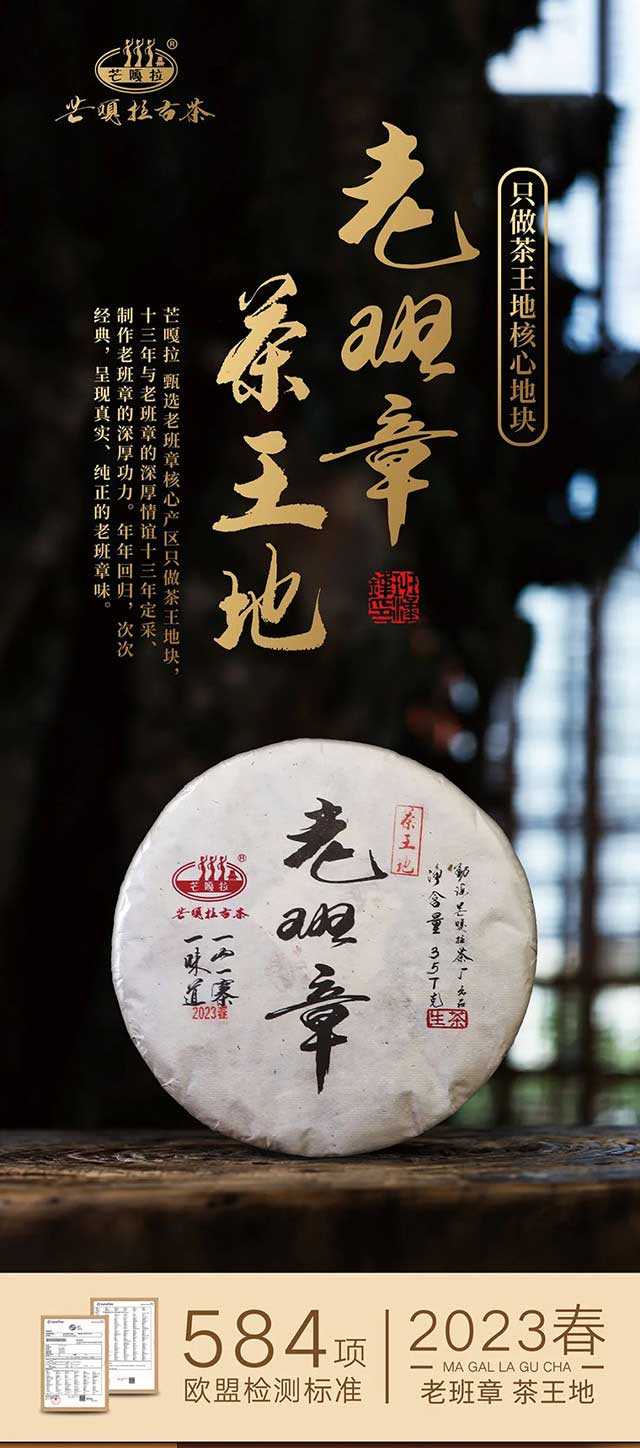 芒嘎拉
®
芒嘎拉古茶
只做茶王地核心地块
老班章
茶王地
芒嘎拉 甄选老班章核心产区只做茶王地块，
十三年与老班章的深厚情谊十三年定采、
制作老班章的深厚功力。年年回归，次次
经典，呈现真实、纯正的老班章味。
老班章
茶王地
勐海芒嘎拉茶厂出品
净含量357克
生茶
芒嘎拉
®
芒嘎拉古茶
一山一寨
一味道
2023春
584项
欧盟检测标准
2023春
MA GAL LA GU CHA
老班章 茶王地